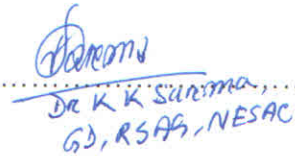 Dr K K Sarma,
GD, RSAG, NESAC